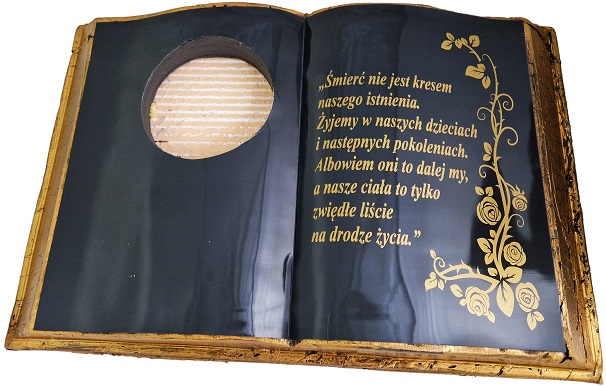 „Śmierć nie jest kresem
naszego istnienia.
Żyjemy w naszych dzieciach
i następnych pokoleniach.
Albowiem oni to dalej my,
a nasze ciała to tylko
zwiędłe liście
na drodze życia.”